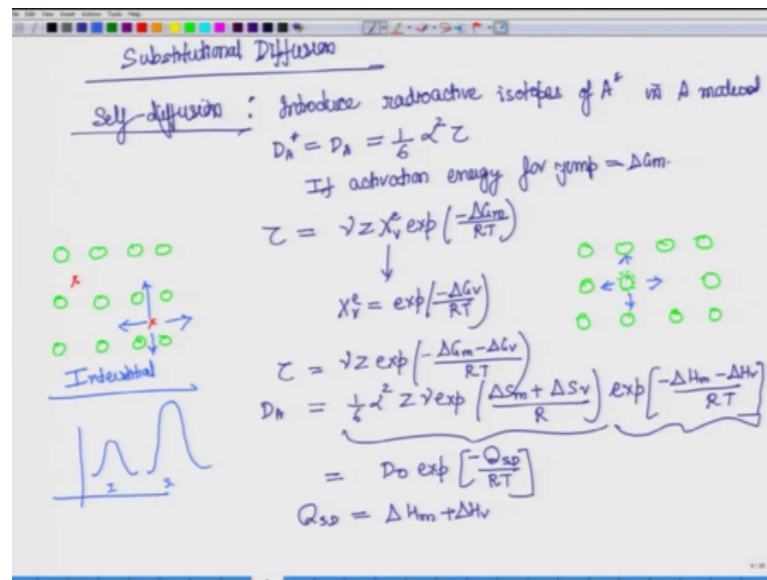 Substitutional Diffusion
Self-diffusion : Introduce radioactive isotopes of A* in A material
D_A* = D_A = 1/6 α² τ
If activation energy for jump = ΔGm.
τ = νz X_v^e exp(-ΔGm/RT)
↓
X_v^e = exp(-ΔGv/RT)
τ = νz exp(-ΔGm-ΔGv/RT)
D_A = 1/6 α² zν exp(ΔSm + ΔSv/R) exp[-ΔHm-ΔHv/RT]
= D₀ exp[-Q_SD/RT]
Q_SD = ΔHm+ΔHv
x
x
Interstitial
I S